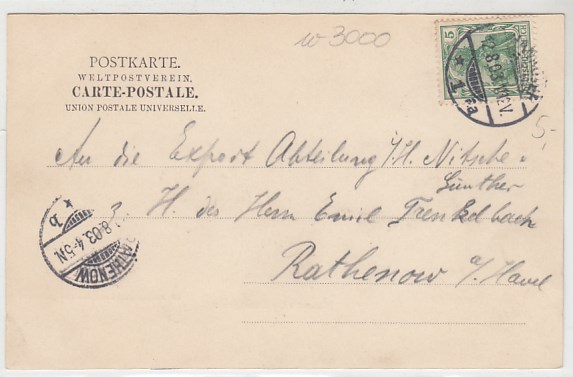 w 3000
POSTKARTE.
WELTPOSTVEREIN.
CARTE-POSTALE.
UNION POSTALE UNIVERSELLE.
5
8.03
V.
* 1
5,-
An die Export Abteilung i/H. Nitsche &
Günther
z. H. des Herrn Emil Trenkelbach
Rathenow a/Havel
* b
8.03. 4-5N.
RATHENOW